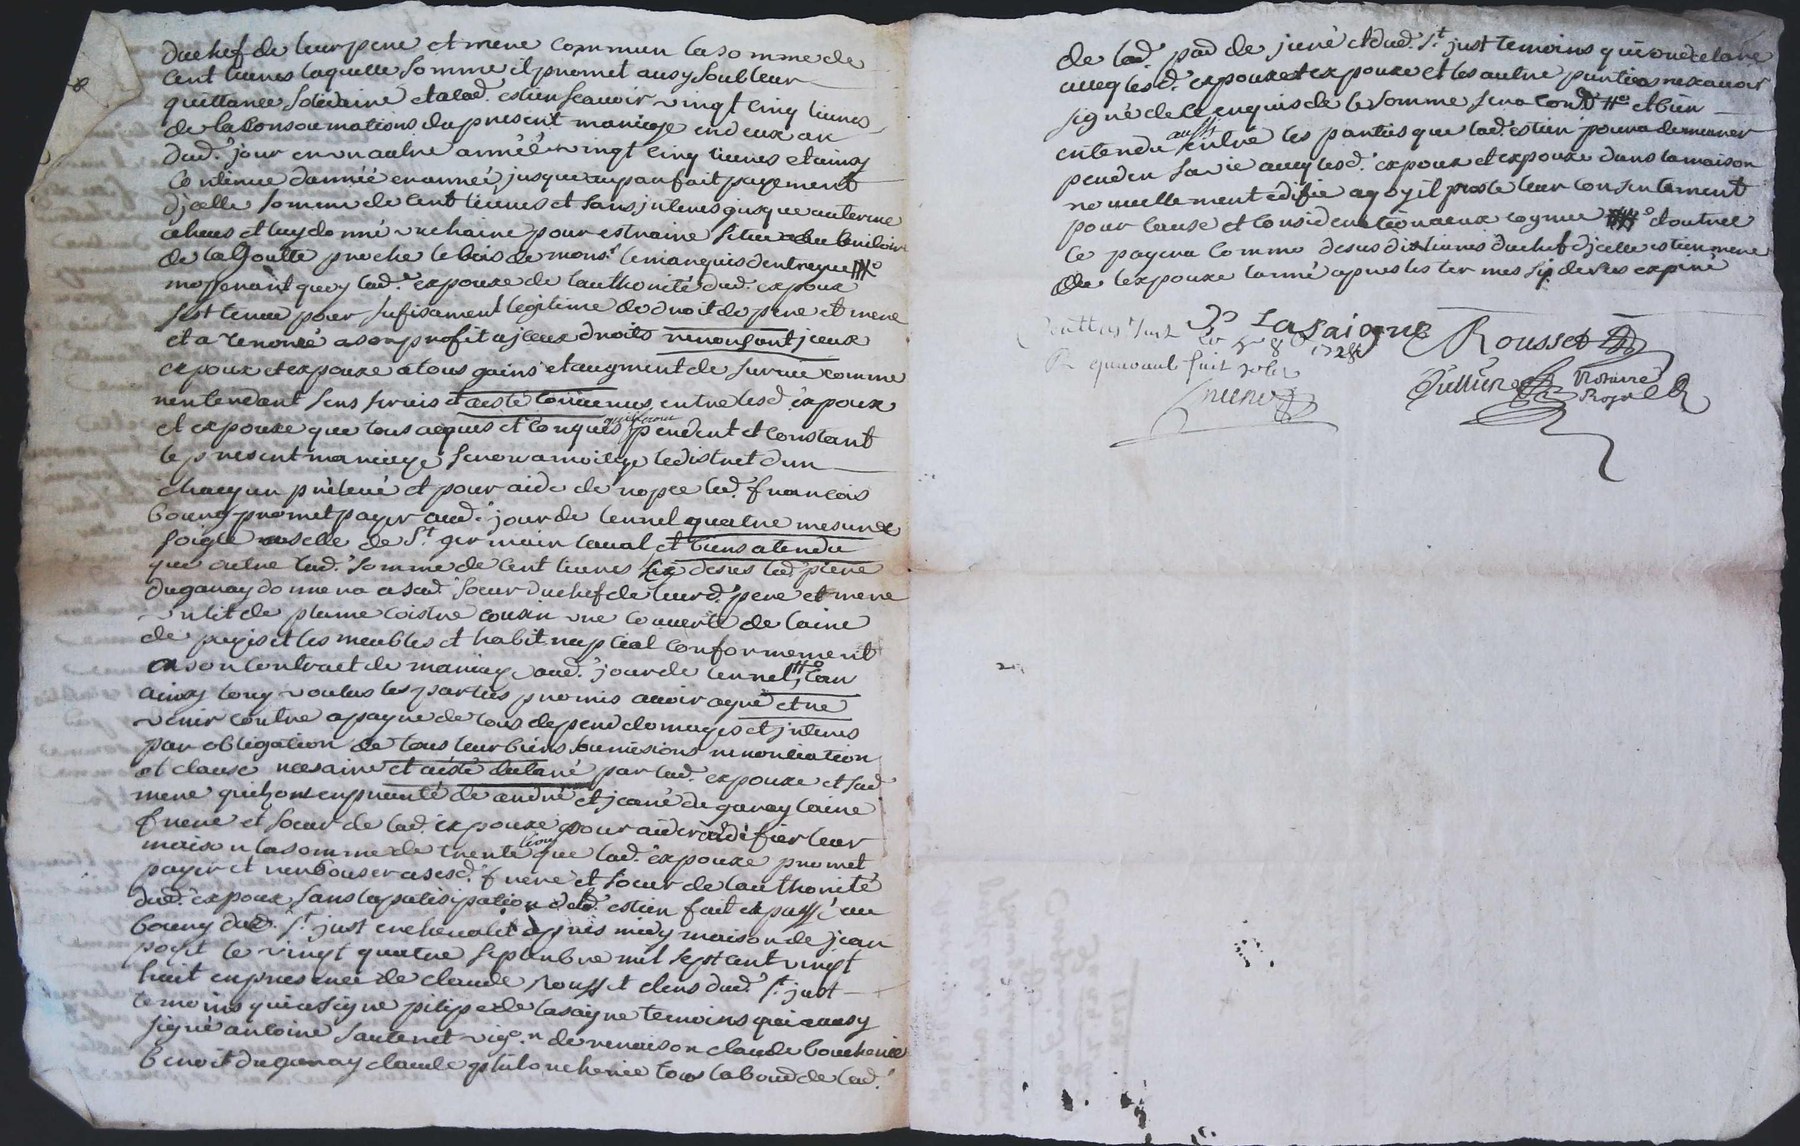 du chef de leur pere et mere commun la somme de
cent livres laquelle somme il promet ausy soub leur
quittance solidaire et alad. estienf scavoir vingt cinq livres
de la consoumations du present mariage en deux an
dud. jour en un autre année vingt cinq livres et ainsy
continue dannée en année jusque au parfait payement
djcelle somme de cent livres et sans jnteres jusque au terme
cheus et luy donné une haine pour estraine situé au
de la Goutte proche le bois de mons.r le marquis dentrague
moyenant quoy lad. expouze de lauthorité dud. expoux
sest tenue pour sufisament legitime de droit de pere et mere
et a renoncé a son profit a jceux droits renonsant jceux
expoux et expouze a tous gains et augment de survie comme
nentendant sens servir et aesté convenus entre lesd. expoux
et expouze que tous acquis et conques quil feront pendent et constant
le present mariage seron a moitye le distret dun
chacqun prelevé et pour aide de nopce led. francois
bourg promet payer aud. jour de lennel quatre mesures
soigle meselle de St. germain laval et biens atendu
que outre lad. somme de cent livres desus led. piere
duganay donnera a sad. soeur du chef de leurd. pere et mere
un lit de plume coistre cousin une couverte de laine
de payis et les meubles et habit nuptial conformement
a son contract de mariage aud. jour de lennel, car
ainsy tous voulus les parties promis avoir agré et ne
venir contre a payne de tous depend domages et jnteres
par obligation de tous leur biens soumisions renontiation
et clause necesaire et aesté declaré par lad. expouze et sad.
mere quihont enprunté de andré et jeané duganay laine
frere et soeur de lad. expouze pour aider a edifier leur
maison la somme de trente livres que lad. expouze promet
payer et renbouser a sesd. frere et soeur de lauthorité
dud. expoux sans la patisipation delad. estien fait et passé au
bourg dud. St. just en chevalet apres midy maison de jean
poyt le vingt quatre septenbre mil sept cent vingt
huit en presence de claude rousset clers dud. St. just
temoins qui a signe pilipe de lasaigne temoins qui ausy
signé antoine sauteret vig.on de renaison claude boucherie
benoit duganay claude philon cherie tous laboud de lad.
de lad. pad de juré et dud. St. just temoins qui ont declaré
avecq lesd. expoux et expouze et les autre parties ne scavoir
signé de ce enquis de le somme sera cont.ll et bien
entendu aussi entre les parties que lad. estien poura demeurer
penden sa vie avecq lesd. expoux et expouze dans la maison
nouvellement edifie a quoy il preste leur consentement
pour cause et considerations a eux cognue et outre
ce payera comme desus dix livres du chef djcelle estien mere
de lexpouze lanné apres les termes sy desus expiré
Lasaigne
Rousset
1728
notaire
Royal